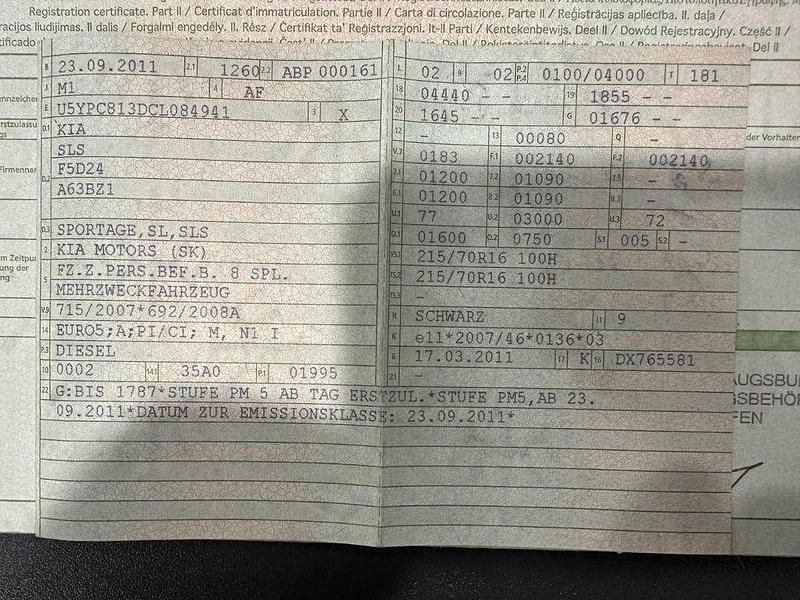 Registration certificate. Part II / Certificat d'immatriculation. Partie II / Carta di circolazione. Parte II / Reģistrācijas apliecība. II. daļa /
racijos liudijimas. II dalis / Forgalmi engedély. II. Rész / Ċertifikat ta' Reġistrazzjoni. It-II Parti / Kentekenbewijs. Deel II / Dowód Rejestracyjny. Część II /
Del II
B 23.09.2011 2.1 1260 2.2 ABP 000161
J M1 4 AF
E U5YPC813DCL084941 3 X
D.1 KIA
D.2 SLS
F5D24
A63BZ1
D.3 SPORTAGE,SL,SLS
2 KIA MOTORS (SK)
5 FZ.Z.PERS.BEF.B. 8 SPL.
MEHRZWECKFAHRZEUG
V.9 715/2007*692/2008A
14 EURO5;A;PI/CI; M, N1 I
P.3 DIESEL
10 0002 14.1 35A0 P.1 01995
L 02 9 02 P.2 P.4 0100/04000 T 181
18 04440 - - 19 1855 - -
20 1645 - - G 01676 - -
12 - 13 00080 Q -
V.7 0183 F.1 002140 F.2 002140
7.1 01200 7.2 01090 7.3 -
8.1 01200 8.2 01090 8.3 -
U.1 77 U.2 03000 U.3 72
O.1 01600 O.2 0750 S.1 005 S.2 -
15.1 215/70R16 100H
15.2 215/70R16 100H
15.3 -
R SCHWARZ 11 9
K e11*2007/46*0136*03
6 17.03.2011 17 K 16 DX765581
21 -
22 G:BIS 1787*STUFE PM 5 AB TAG ERSTZUL.*STUFE PM5,AB 23.
09.2011*DATUM ZUR EMISSIONSKLASSE: 23.09.2011*
der Vorhalter
AUGSBU
SBEHÖ
FEN